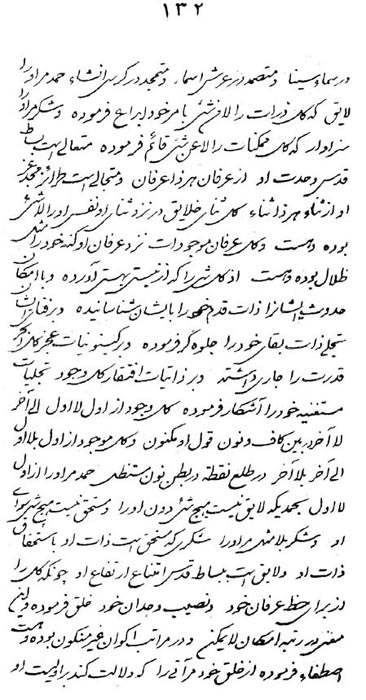 ۱۳۲
در سماء سینا و متصمد در عرش اسما و متمجد در کرسی انشاء حمد مر او را
لایق که کل ذرات را لا من شیء بامر خود ابداع فرموده و شکر مر او را
سزاوار که کل ممکنات را لا عن شیء قائم فرموده متعالی است بساط
قدس وحدت او از عرفان هر ذا عرفان و متجالی است طراز مجد عز
او از ثناء هر ذا ثناء کل ثنای خلایق در نزد ثناء او نفس او را لا شیء
بوده و هست و کل عرفان موجودات نزد عرفان او کنه خود را مثل
ظلال بوده و هست او کل شیء را که از نیستی بهستی آورده و با امکان
حدوثیه ایشان از ذات قدم خود را بایشان شناسانیده و در فنای ایشان
تجلی ذات بقای خود را جلوه گر فرموده و در کینونیات عجز کل ابحر
قدرت را جاری داشته و در ذاتیات افتقار کل وجود تجلیات
مستغنیه خود را آشکار فرموده کل وجود از اول لا اول الی آخر
لا آخر در بین کاف و نون قول او مکنون و کل موجود از اول بلا اول
الی آخر بلا آخر در طلع نقطه در بطن نون مستظل حمد مر او را از اول
لا اول بحمدیکه لایق نیست هیچ شیء دون او را و مستحق نیست هیچ شیء سوای
او و شکر بلا منتهی مر او را شکری که مستحق است ذات او باستحقاق
ذات او و لایق است بساط قدس امتناع ارتفاع او چونکه کل را
از برای حظ عرفان خود و نصیب وجدان خود خلق فرموده و این
معنی در رتبه امکان لا یمکن و در مراتب اکوان غیر متکون بوده و هست
اصطفاء فرموده از خلق خود مرآتی را که دلالت کند بر او نیست او